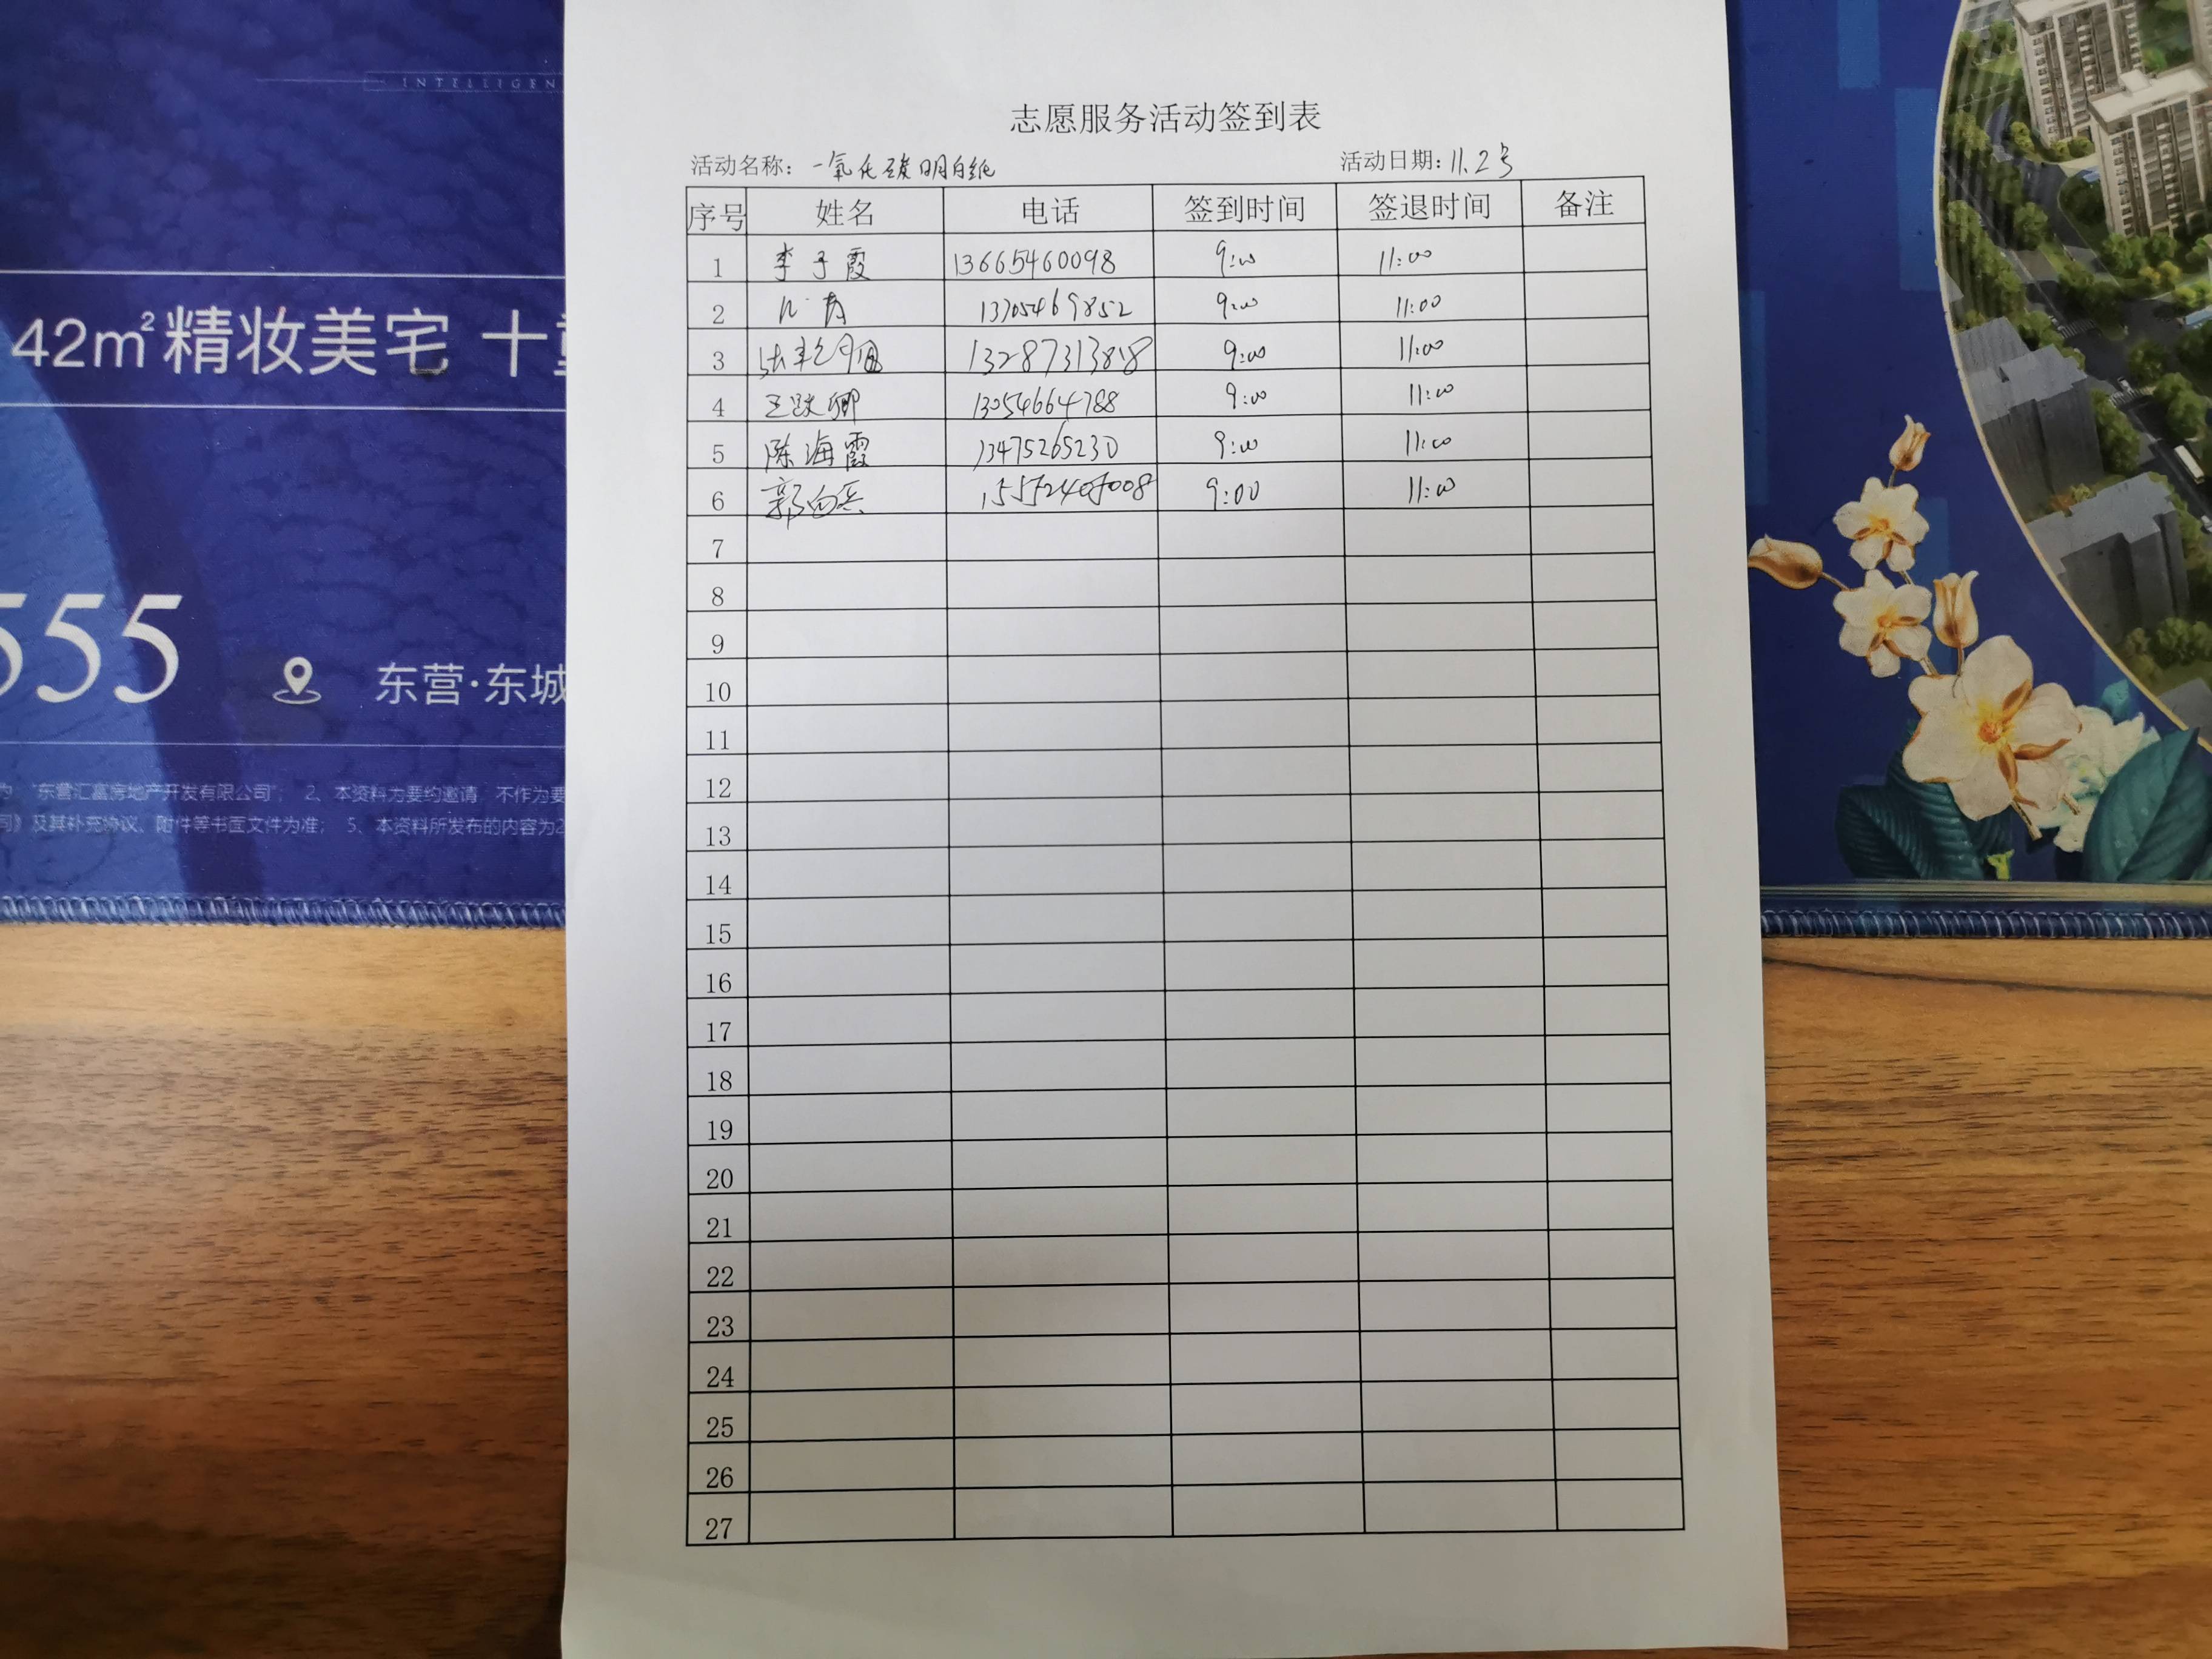 INTELLIGEN
42m²精妆美宅 十
555
东营·东城
“东营汇富房地产开发有限公司”； 2、本资料为要约邀请，不作为要
及其补充协议、附件等书面文件为准； 5、本资料所发布的内容为2
志愿服务活动签到表
活动名称：一氧化碳明白纸 活动日期：11.2号
序号 姓名 电话 签到时间 签退时间 备注
1 李子霞 13665460098 9:00 11:00
2 13705469852 9:00 11:00
3 13287313818 9:00 11:00
4 13054664788 9:00 11:00
5 陈海霞 13475265230 9:00 11:00
6 9:00 11:00
7
8
9
10
11
12
13
14
15
16
17
18
19
20
21
22
23
24
25
26
27